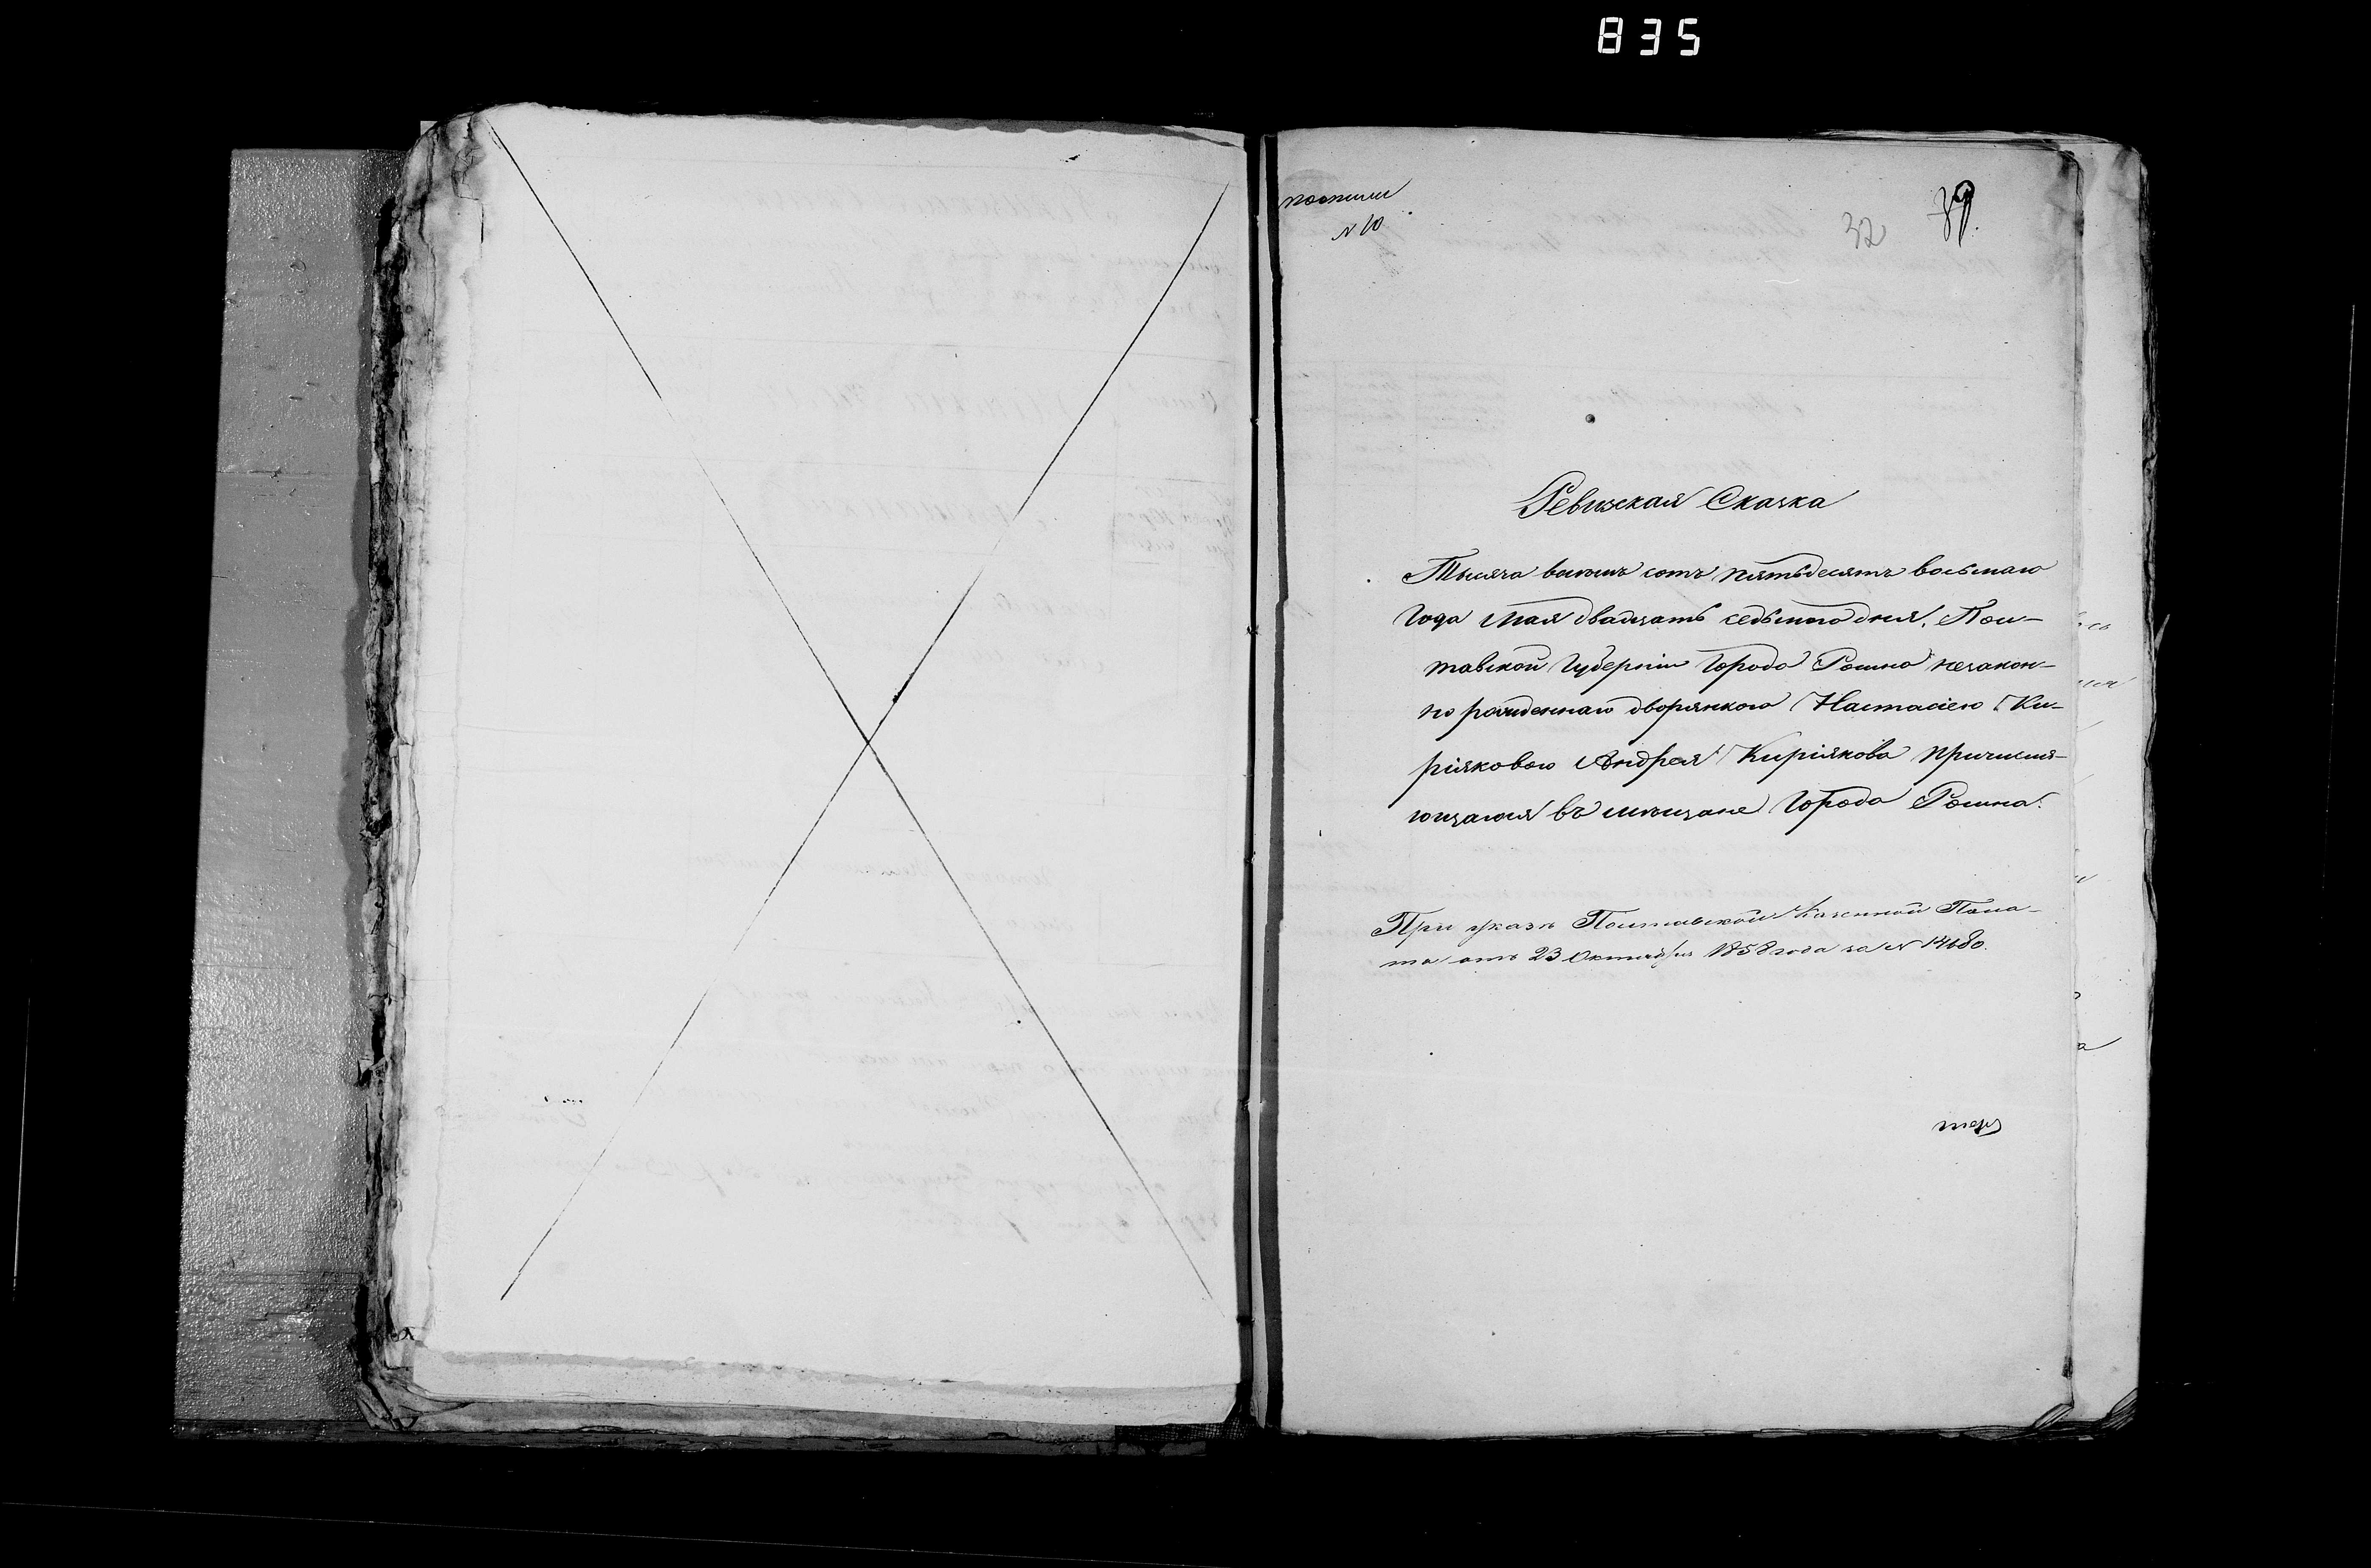 835
№ 10
32
39.
Ревизская Сказка
Тысяча восемь сотъ пятьдесятъ восьмаго
Года Мая двадцать седьмаго дня, Пол-
тавской Губерніи Города Ромна незакон-
но рожденнаго дворянкою Настасіею Ки-
ріяковою Андрея Киріякова причисля-
ющагося въ мѣщане Города Ромна.
При указѣ Полтавской Казенной Пала-
ты отъ 23 Октября 1858 года за № 14680.